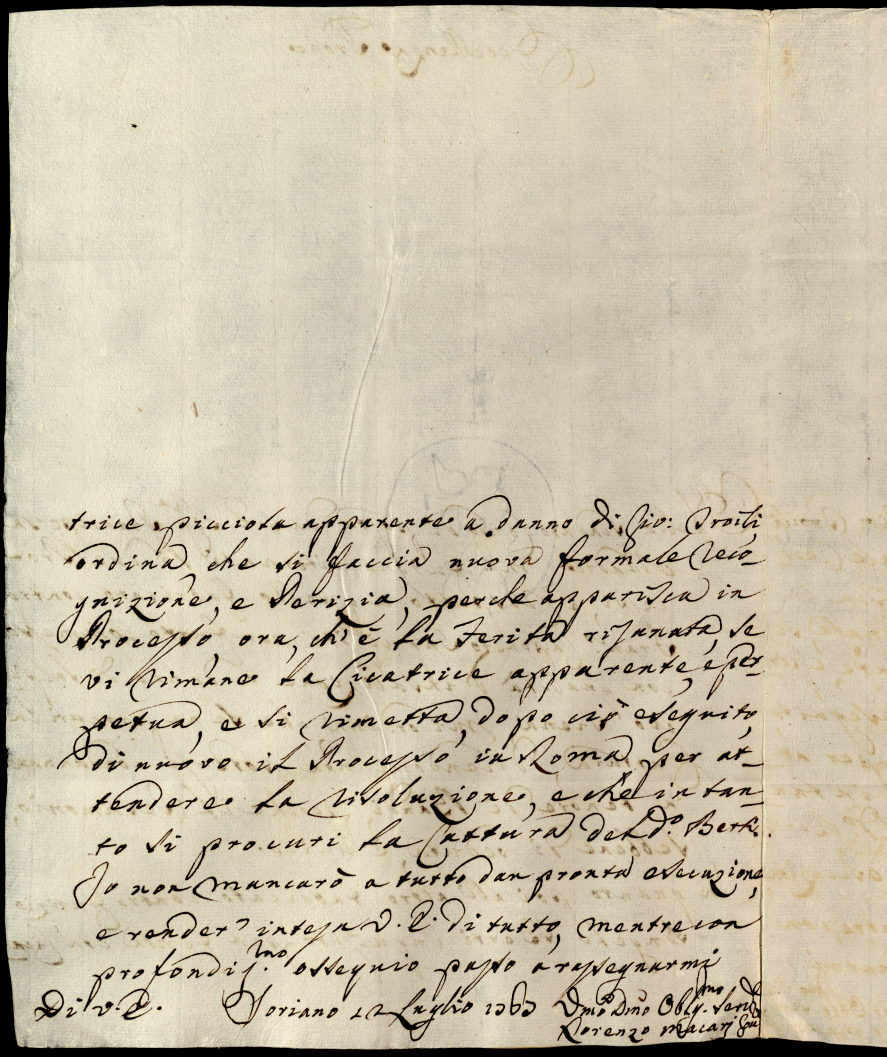 trice picciola apparente a danno di Gio: Troili
ordina, che si faccia nuova formale reco-
gnizione, e Perizia, perche apparisca in
Processo, ora, ch'è la Ferita risanata, se
vi rimane la Cicatrice apparente, e per-
petua, e si rimetta, dopo ciò eseguito,
di nuovo il Processo in Roma per at-
tendere la risoluzione, e che in tan-
to si procuri la Cattura del d.º Bert.
Io non mancarò a tutto dar pronta esecuzione,
e render intesa V. E. di tutto, mentre con
profondis.mo ossequio passo a rassegnarmi
Di V. E. Soriano 12 Luglio 1763 Vmo Dmo Oblg.mo Ser.
Lorenzo Macarj